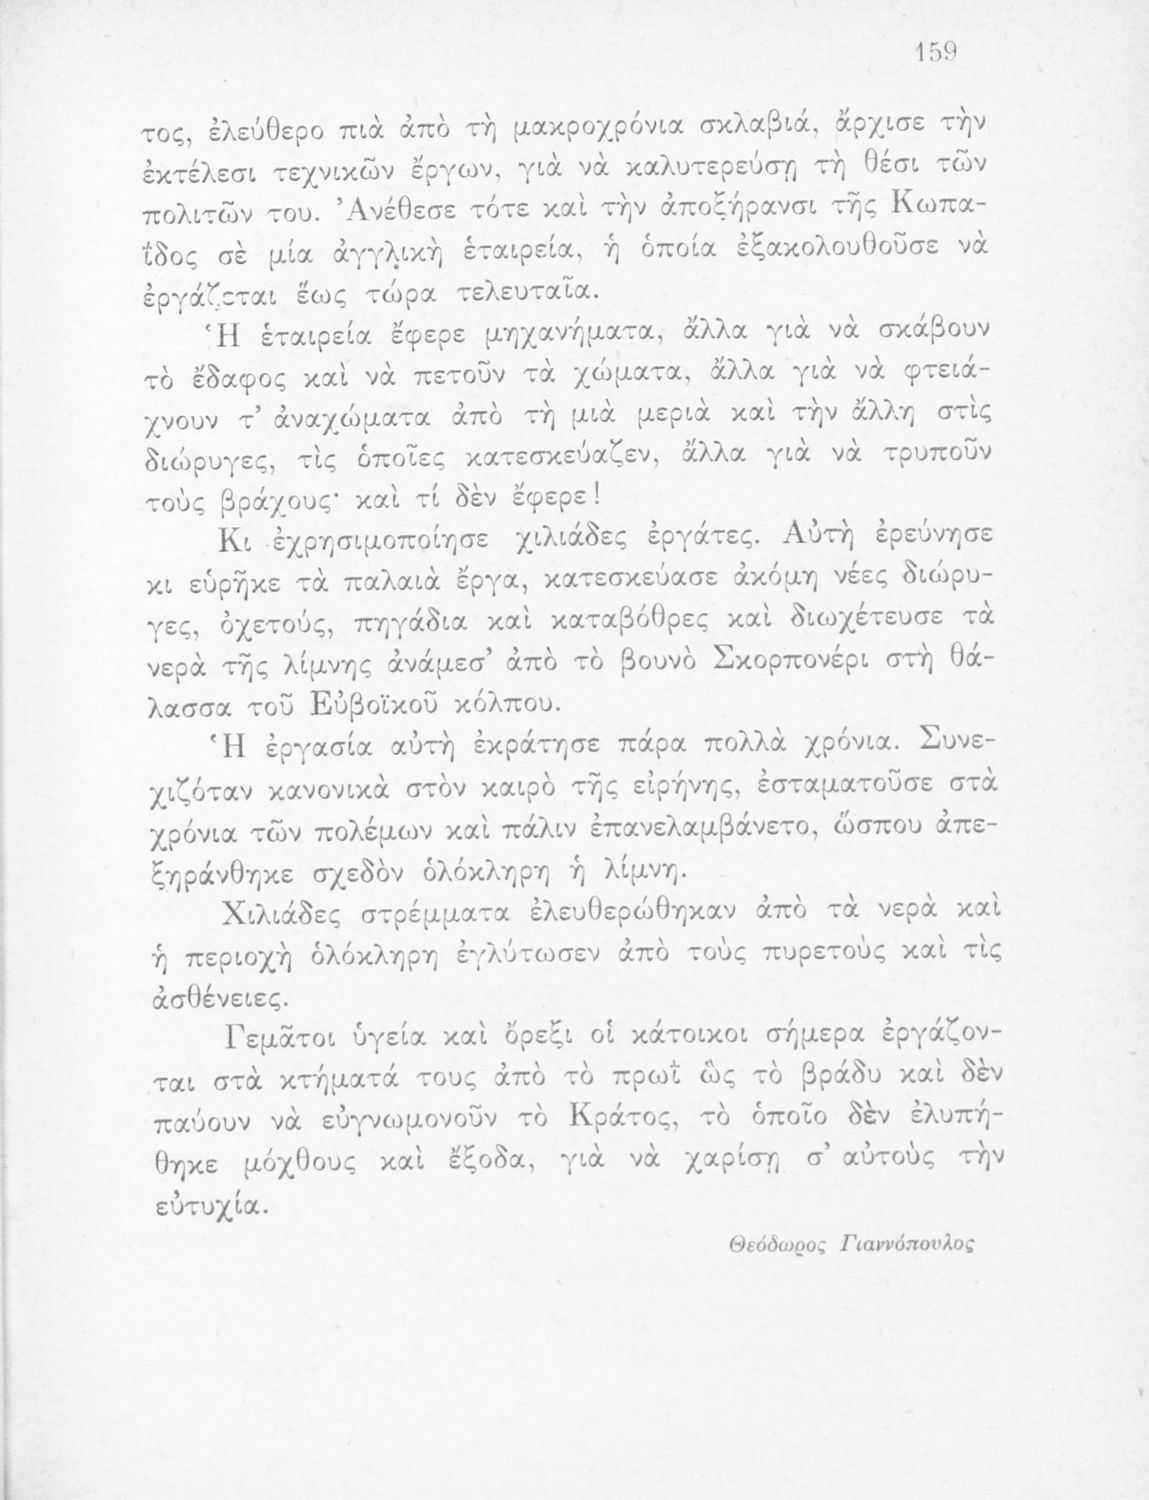 159
τος, ἐλεύθερο πιὰ ἀπὸ τὴ μακροχρόνια σκλαβιά, ἄρχισε τὴν
ἐκτέλεσι τεχνικῶν ἔργων, γιὰ νὰ καλυτερεύσῃ τὴ θέσι τῶν
πολιτῶν του. Ἀνέθεσε τότε καὶ τὴν ἀποξήρανσι τῆς Κωπα-
ΐδος σὲ μία ἀγγλικὴ ἑταιρεία, ἡ ὁποία ἐξακολουθοῦσε νὰ
ἐργάζεται ἕως τώρα τελευταῖα.
Ἡ ἑταιρεία ἔφερε μηχανήματα, ἄλλα γιὰ νὰ σκάβουν
τὸ ἔδαφος καὶ νὰ πετοῦν τὰ χώματα, ἄλλα γιὰ νὰ φτειά-
χνουν τ’ ἀναχώματα ἀπὸ τὴ μιὰ μεριὰ καὶ τὴν ἄλλη στὶς
διώρυγες, τὶς ὁποῖες κατεσκεύαζεν, ἄλλα γιὰ νὰ τρυποῦν
τοὺς βράχους· καὶ τί δὲν ἔφερε!
Κι ἐχρησιμοποίησε χιλιάδες ἐργάτες. Αὐτὴ ἐρεύνησε
κι εὑρῆκε τὰ παλαιὰ ἔργα, κατεσκεύασε ἀκόμη νέες διώρυ-
γες, ὀχετούς, πηγάδια καὶ καταβόθρες καὶ διωχέτευσε τὰ
νερὰ τῆς λίμνης ἀνάμεσ’ ἀπὸ τὸ βουνὸ Σκορπονέρι στὴ θά-
λασσα τοῦ Εὐβοϊκοῦ κόλπου.
Ἡ ἐργασία αὐτὴ ἐκράτησε πάρα πολλὰ χρόνια. Συνε-
χιζόταν κανονικὰ στὸν καιρὸ τῆς εἰρήνης, ἐσταματοῦσε στὰ
χρόνια τῶν πολέμων καὶ πάλιν ἐπανελαμβάνετο, ὥσπου ἀπε-
ξηράνθηκε σχεδὸν ὁλόκληρη ἡ λίμνη.
Χιλιάδες στρέμματα ἐλευθερώθηκαν ἀπὸ τὰ νερὰ καὶ
ἡ περιοχὴ ὁλόκληρη ἐγλύτωσεν ἀπὸ τοὺς πυρετοὺς καὶ τὶς
ἀσθένειες.
Γεμᾶτοι ὑγεία καὶ ὄρεξι οἱ κάτοικοι σήμερα ἐργάζον-
ται στὰ κτήματά τους ἀπὸ τὸ πρωῒ ὣς τὸ βράδυ καὶ δὲν
παύουν νὰ εὐγνωμονοῦν τὸ Κράτος, τὸ ὁποῖο δὲν ἐλυπή-
θηκε μόχθους καὶ ἔξοδα, γιὰ νὰ χαρίσῃ σ’ αὐτοὺς τὴν
εὐτυχία.
Θεόδωρος Γιαννόπουλος